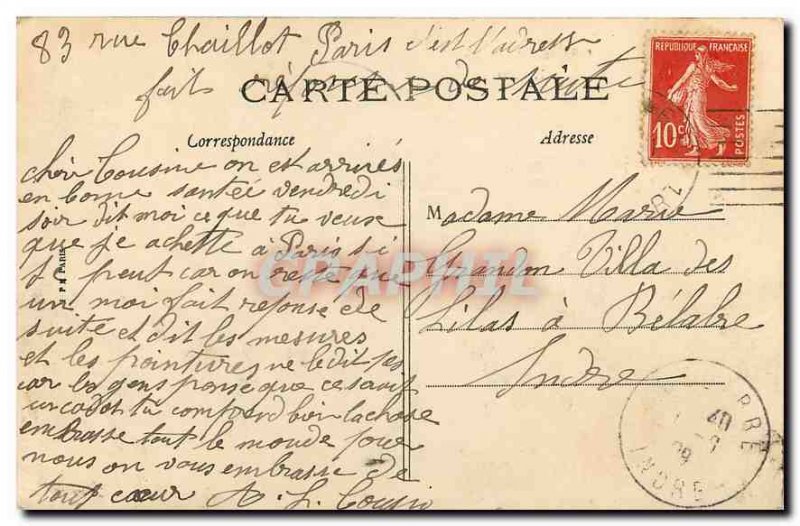 83 rue Chaillot Paris c'est l'adresse
fait réponse de suite
CARTE POSTALE
REPUBLIQUE FRANÇAISE
10c
POSTES
Correspondance
Adresse
cher Cousine on est arrivés
en bonne santée vendredi
soir dit moi ce que tu veux
que je achette à Paris si
se peut car on reste que
un moi fait reponse de
suite et dit les mesures
et les pointures ne le dit pas
car les gens pense que ce sauf
un cadot tu comprend bien la chose
embrasse tout le monde pour
nous on vous embrasse de
tout cœur A. L. Cousin
Madame Marie
Grandon Villa des
Lilas à Bélabre
Indre
CPAPHIL
PARIS
INDRE